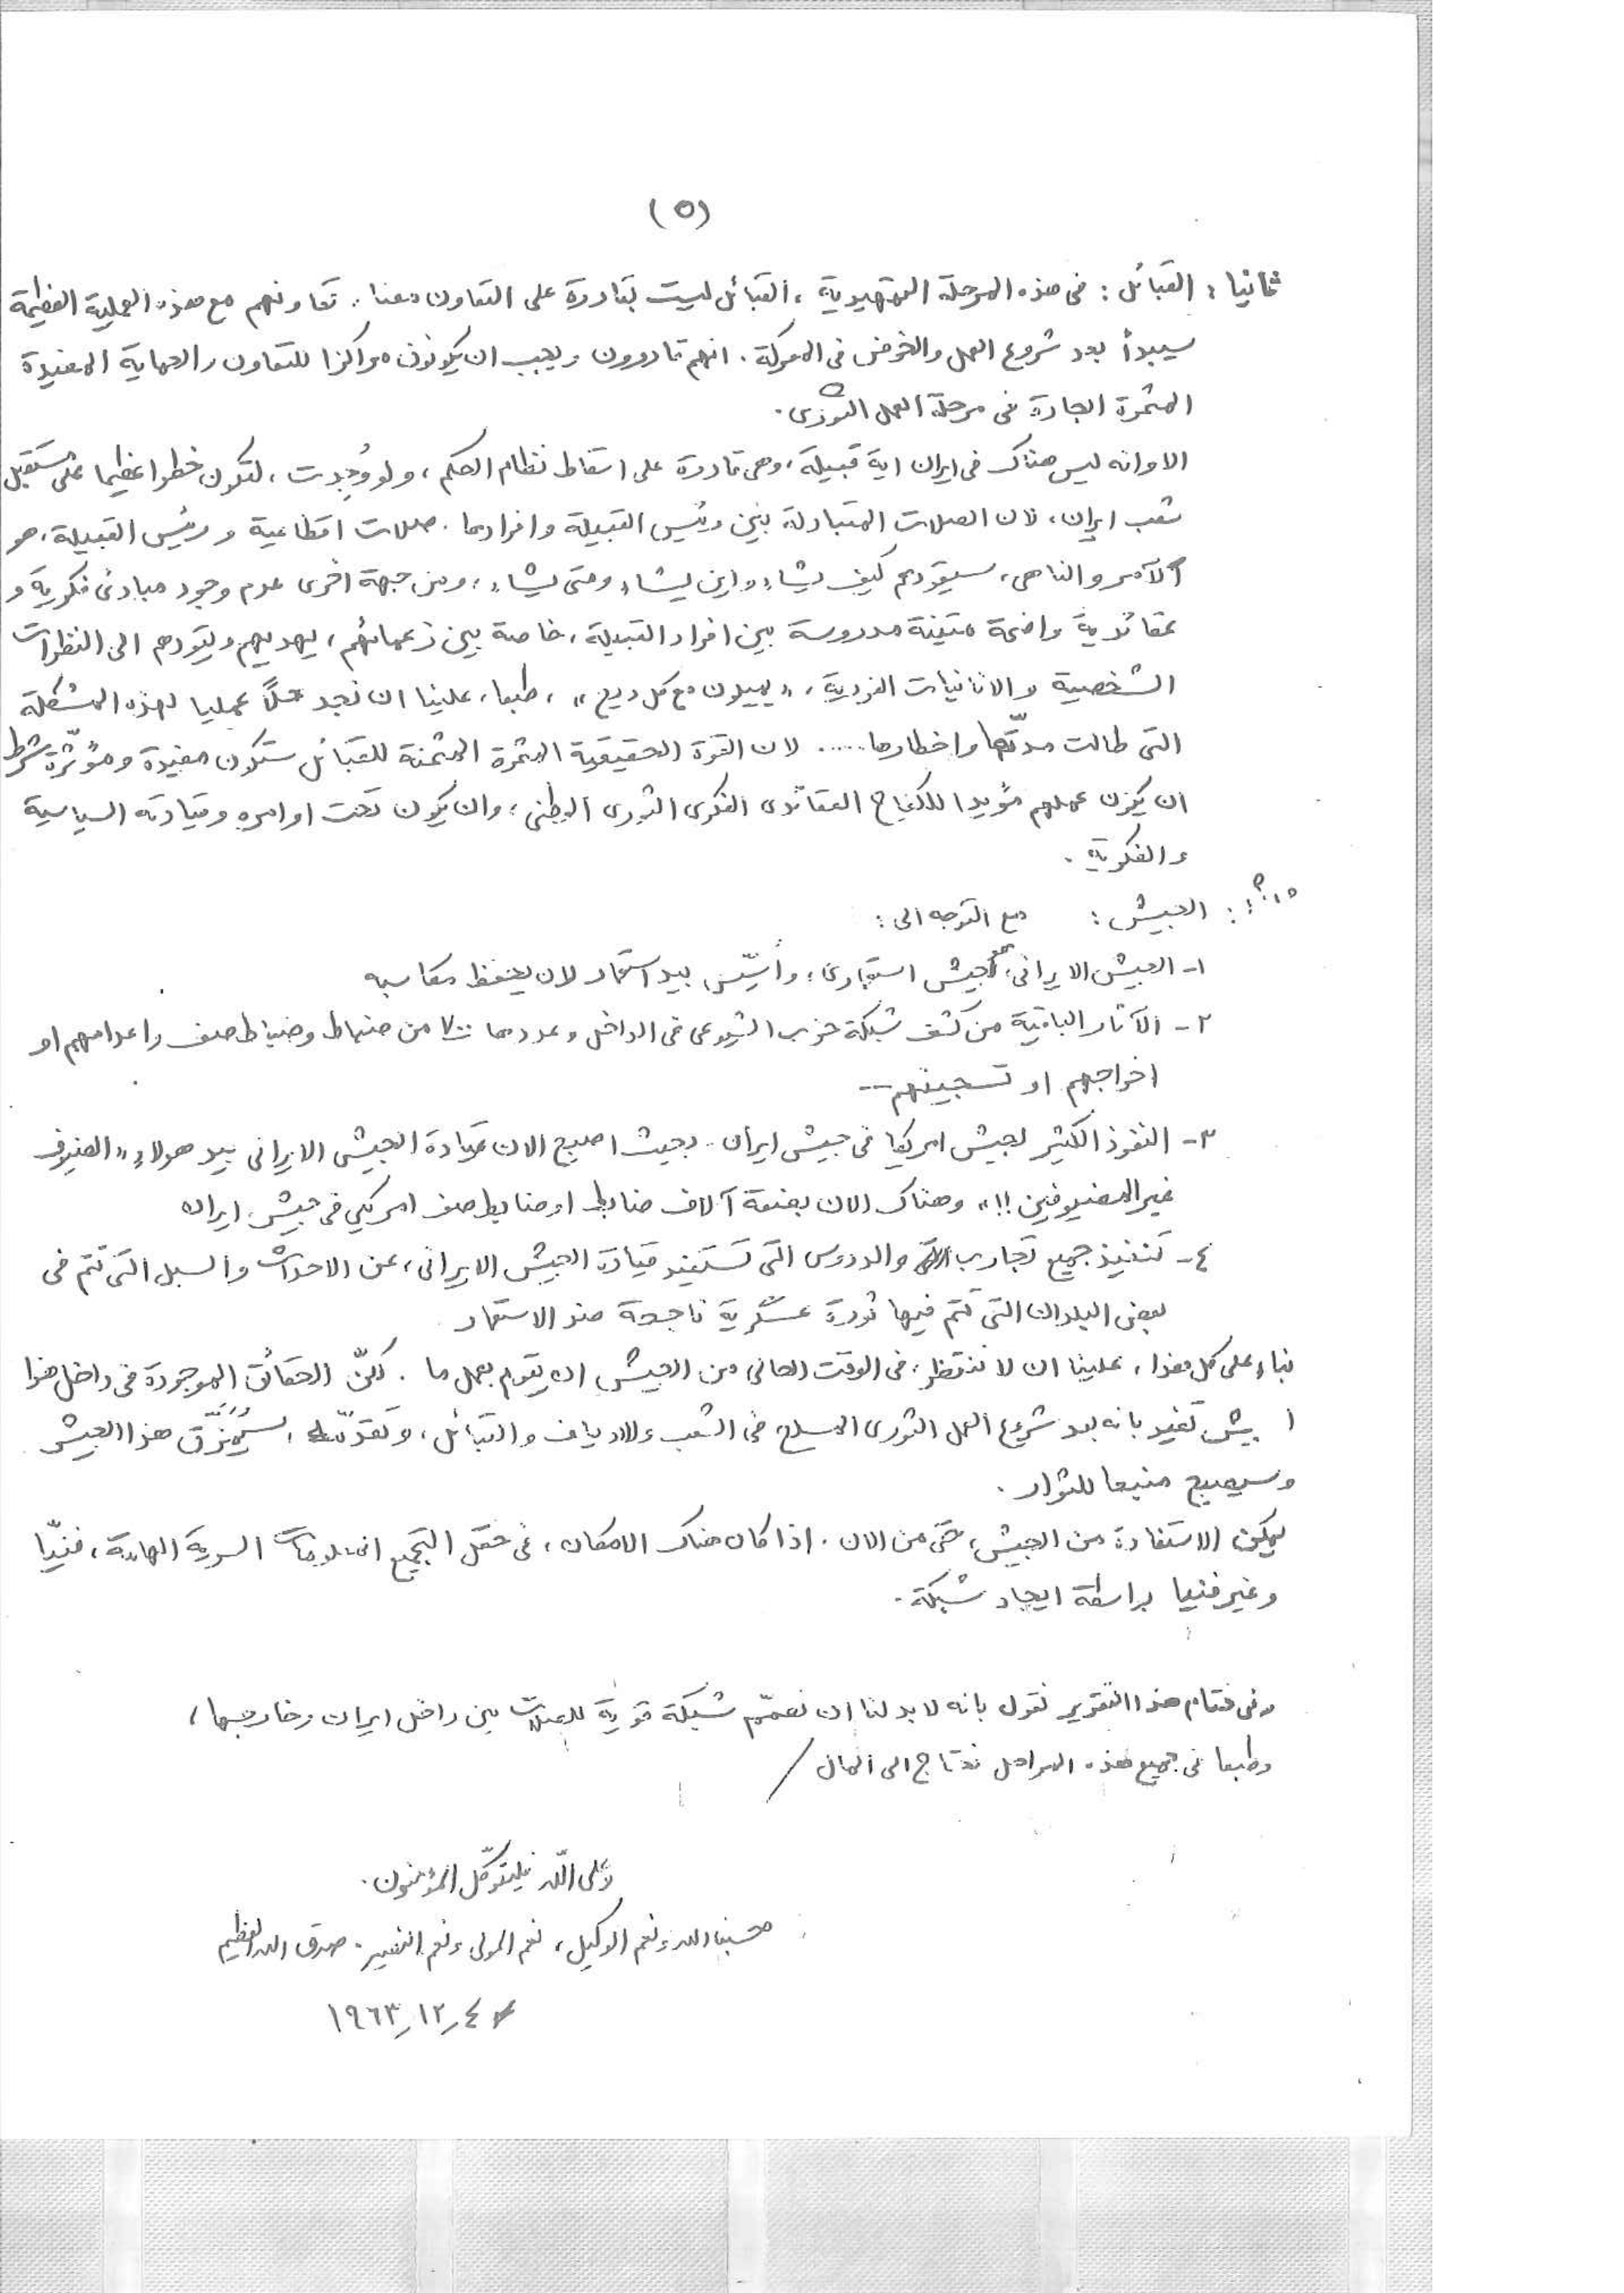 (٥)
ثانيا : القبائل : فى هذه المرحلة التمهيدية ، القبائل ليست بقادرة على التعاون معنا . تعاونهم مع هذه العملية العظيمة
سيبدأ بعد شروع العمل والخوض فى المعركة . انهم قادرون ويجب ان يكونوا مراكزا للتعاون والحماية المفيدة
المثمرة الجادة فى مرحلة العمل الثورى .
الا وانه ليس هناك فى ايران اية قبيلة ، وهى قادرة على اسقاط نظام الحكم ، ولو وُجِدت ، لتكون خطرا عظيما على مستقبل
شعب ايران ، لان الصلات المتبادلة بين رئيس القبيلة وافرادها . صلات اقطاعية ورئيس القبيلة ، هو
الآمر والناهى ، سيقودهم كيف يشاء واين يشاء ومتى يشاء ، ومن جهة اخرى عدم وجود مبادئ فكرية و
عقائدية واضحة متينة مدروسة بين افراد القبيلة ، خاصة بين زعمائهم ، يهديهم ويقودهم الى النظرات
الشخصية والانانيات الفردية ، « يميلون مع كل ريح » ، طبعا ، علينا ان نجد حلاً عمليا لهذه المشكلة
التى طالت مدتّها واخطارها ..... لان القوة الحقيقية المثمرة المثمنة للقبائل ستكون مفيدة ومؤثّرة شرط
ان يكون عملهم مؤيدا للكفاح العقائدى الفكرى الثورى الوطنى ، وان يكون تحت اوامره وقيادته السياسية
والفكرية .
: الجيش : مع التوجه الى :
١- الجيش الايرانى ، هو جيش استعمارى ، وأسّس بيد استعمار لان يحفظ مكاسبه
٢- الآثار الباقية من كشف شبكة حزب الشيوعى فى الداخل وعددها ٧٠٠ من ضباط وضباط صف واعدامهم او
اخراجهم او تسجينهم --
٣- النفوذ الكثير لجيش امريكا فى جيش ايران . بحيث اصبح الان قيادة الجيش الايرانى بيد هولاء « الضيوف
غير المضيوفين !! » وهناك الان بضعة آلاف ضابط او ضابط صف امريكي فى جيش ايران
٤- تنفيذ جميع تجارب والدروس التى تستفيد قيادة الجيش الايرانى ، عن الاحداث والسبل التى تتم فى
بعض البلدان التى تتم فيها ثورة عسكرية ناجحة ضد الاستعمار
بناء على كل هذا ، علينا ان لا ننتظر ، فى الوقت الحالى من الجيش ان يقوم بعمل ما . لكنّ الحقائق الموجودة فى داخل هذا
الجيش تفيد بانه بعد شروع العمل الثورى المسلح فى الشعب والارياف والقبائل ، وتقدّمه ، سَيُمَزَّق هذا الجيش
وسيصبح منبعا للثوار .
يمكن الاستفادة من الجيش ، حتى من الان . اذا كان هناك الامكان ، فى حقل التجميع السرية الهامة ، فنيّا
وغير فنيا بواسطة ايجاد شبكة .
وفى ختام هذا التقرير نقول بانه لابد لنا ان نعمّم شبكة قوية للصلات بين داخل ايران وخارجها ،
وطبعا فى جميع هذه المراحل نحتاج الى المال /
وعلى اللّه فليتوكّل المؤمنون .
حسبنا الله ونعم الوكيل ، نعم المولى ونعم النصير . صدق الله العظيم
٤ ر ١٢ ر ١٩٦٣